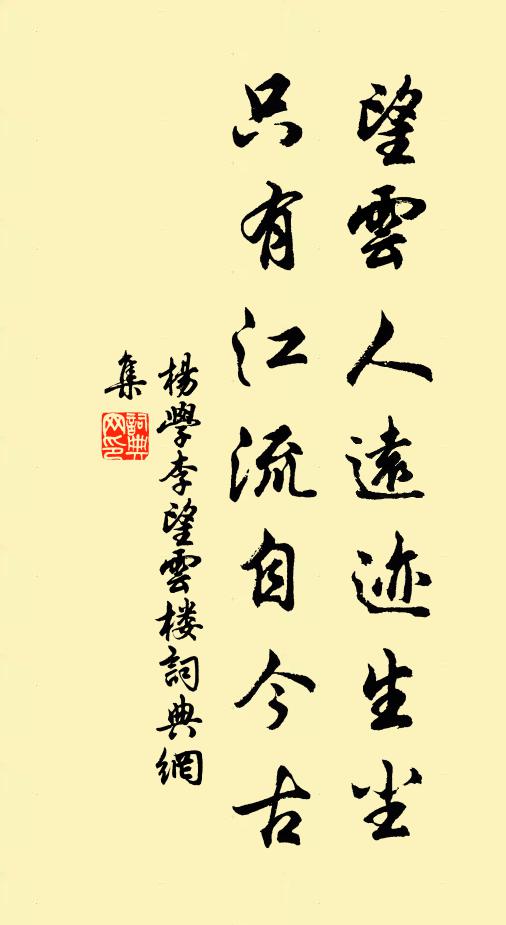 望雲人遠迹生尘
只有江流自今古
楊學李望雲楼詞典網
集
詞典
网印